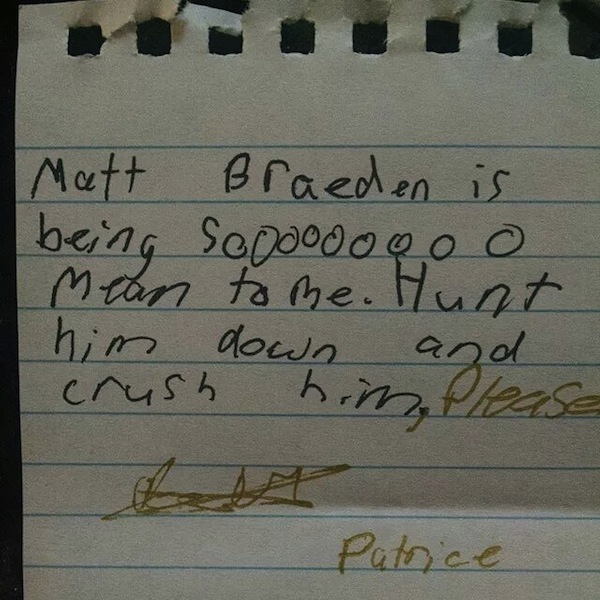 Matt Braeden is
being soooooooo o
mean to me. Hunt
him down and
crush him, Please
Patrice